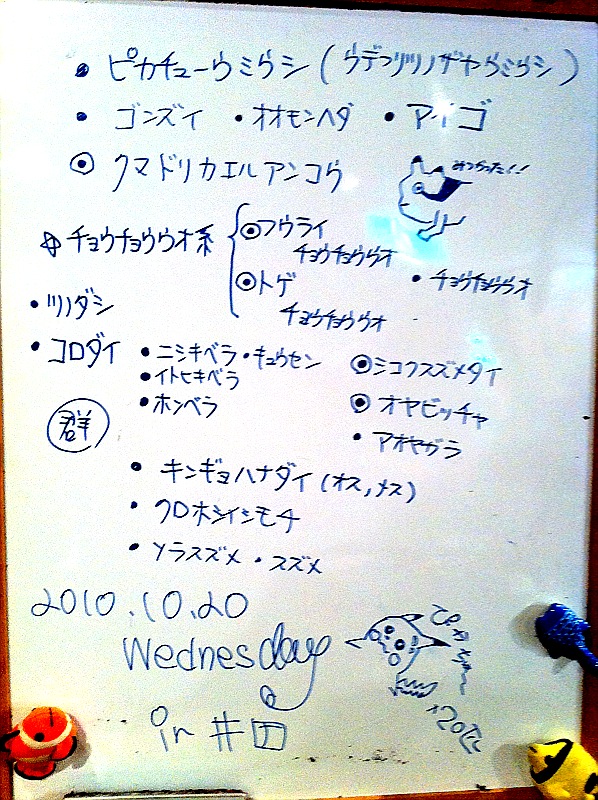 • ピカチューウミウシ(ウデフリツノザヤウミウシ)
• ゴンズイ •オオモンハタ • アイゴ
◉ クマドリカエルアンコウ
みつかった!!
チョウチョウウオ系
◉フウライ
チョウチョウウオ
◉トゲ
チョウチョウウオ
• チョウチョウウオ
• ツノダシ
• コロダイ
• ニシキベラ・キュウセン
• イトヒキベラ
• ホンベラ
◉シコクスズメダイ
◉ オヤビッチャ
• アオヤガラ
群
• キンギョハナダイ(オス,メス)
• クロホシイシモチ
• ソラスズメ ・スズメ
2010.10.20
Wednesday
in 井田
ぴかちゅ〜
×20匹